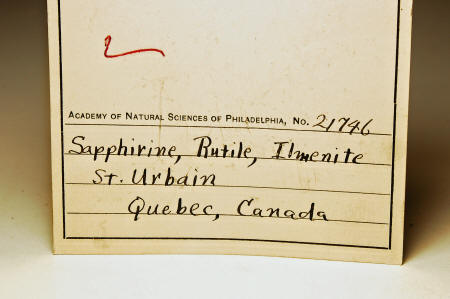 ACADEMY OF NATURAL SCIENCES OF PHILADELPHIA, NO. 21746
Sapphirine, Rutile, Ilmenite
St. Urbain
Quebec, Canada